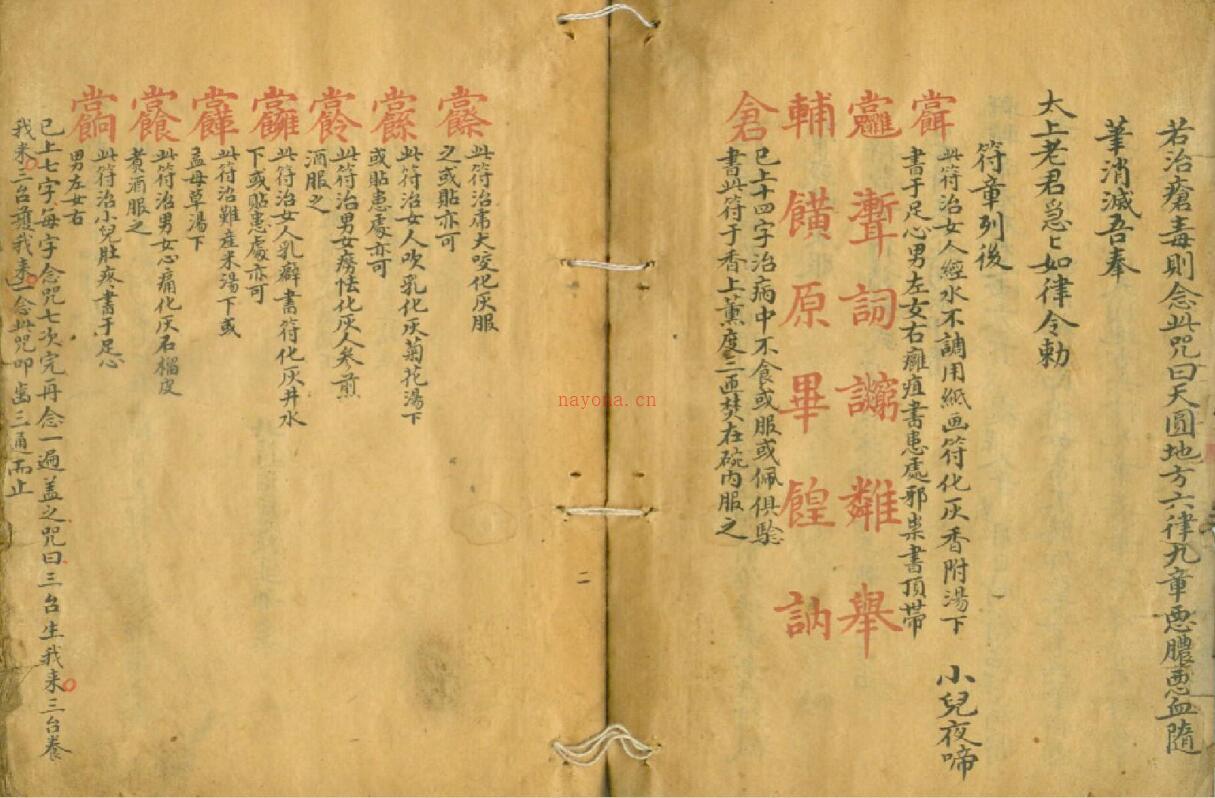 若治瘡毒則念此咒曰天圓地方六律九章惡膿惡血隨
筆消滅吾奉
太上老君急匕如律令勅
符章列後
此符治女人經水不調用紙画符化灰香附湯下
書于足心男左女右癰疽書患處邪祟書頂帶
小兒夜啼
詞
舉
輔
原畢餭訥
倉
已上十四字治病中不食或服或佩俱驗
書此符于香上薰度三匝焚在碗內服之
此符治席犬咬化灰服
之或貼亦可
此符治女人吹乳化灰菊花湯下
或貼患處亦可
此符治男女癆怯化灰人參煎
酒服之
此符治女人乳癖書符化灰井水
下或貼患處亦可
此符治難產米湯下或
益母草湯下
此符治男女心痛化灰石榴皮
煑酒服之
此符治小兒肚疼書于足心
男左女右
已上七字每字念咒七次完再念一遍盖之咒曰三台生我来三台養
我来三台護我来一念此咒叩齒三通而止
二
nayona.cn